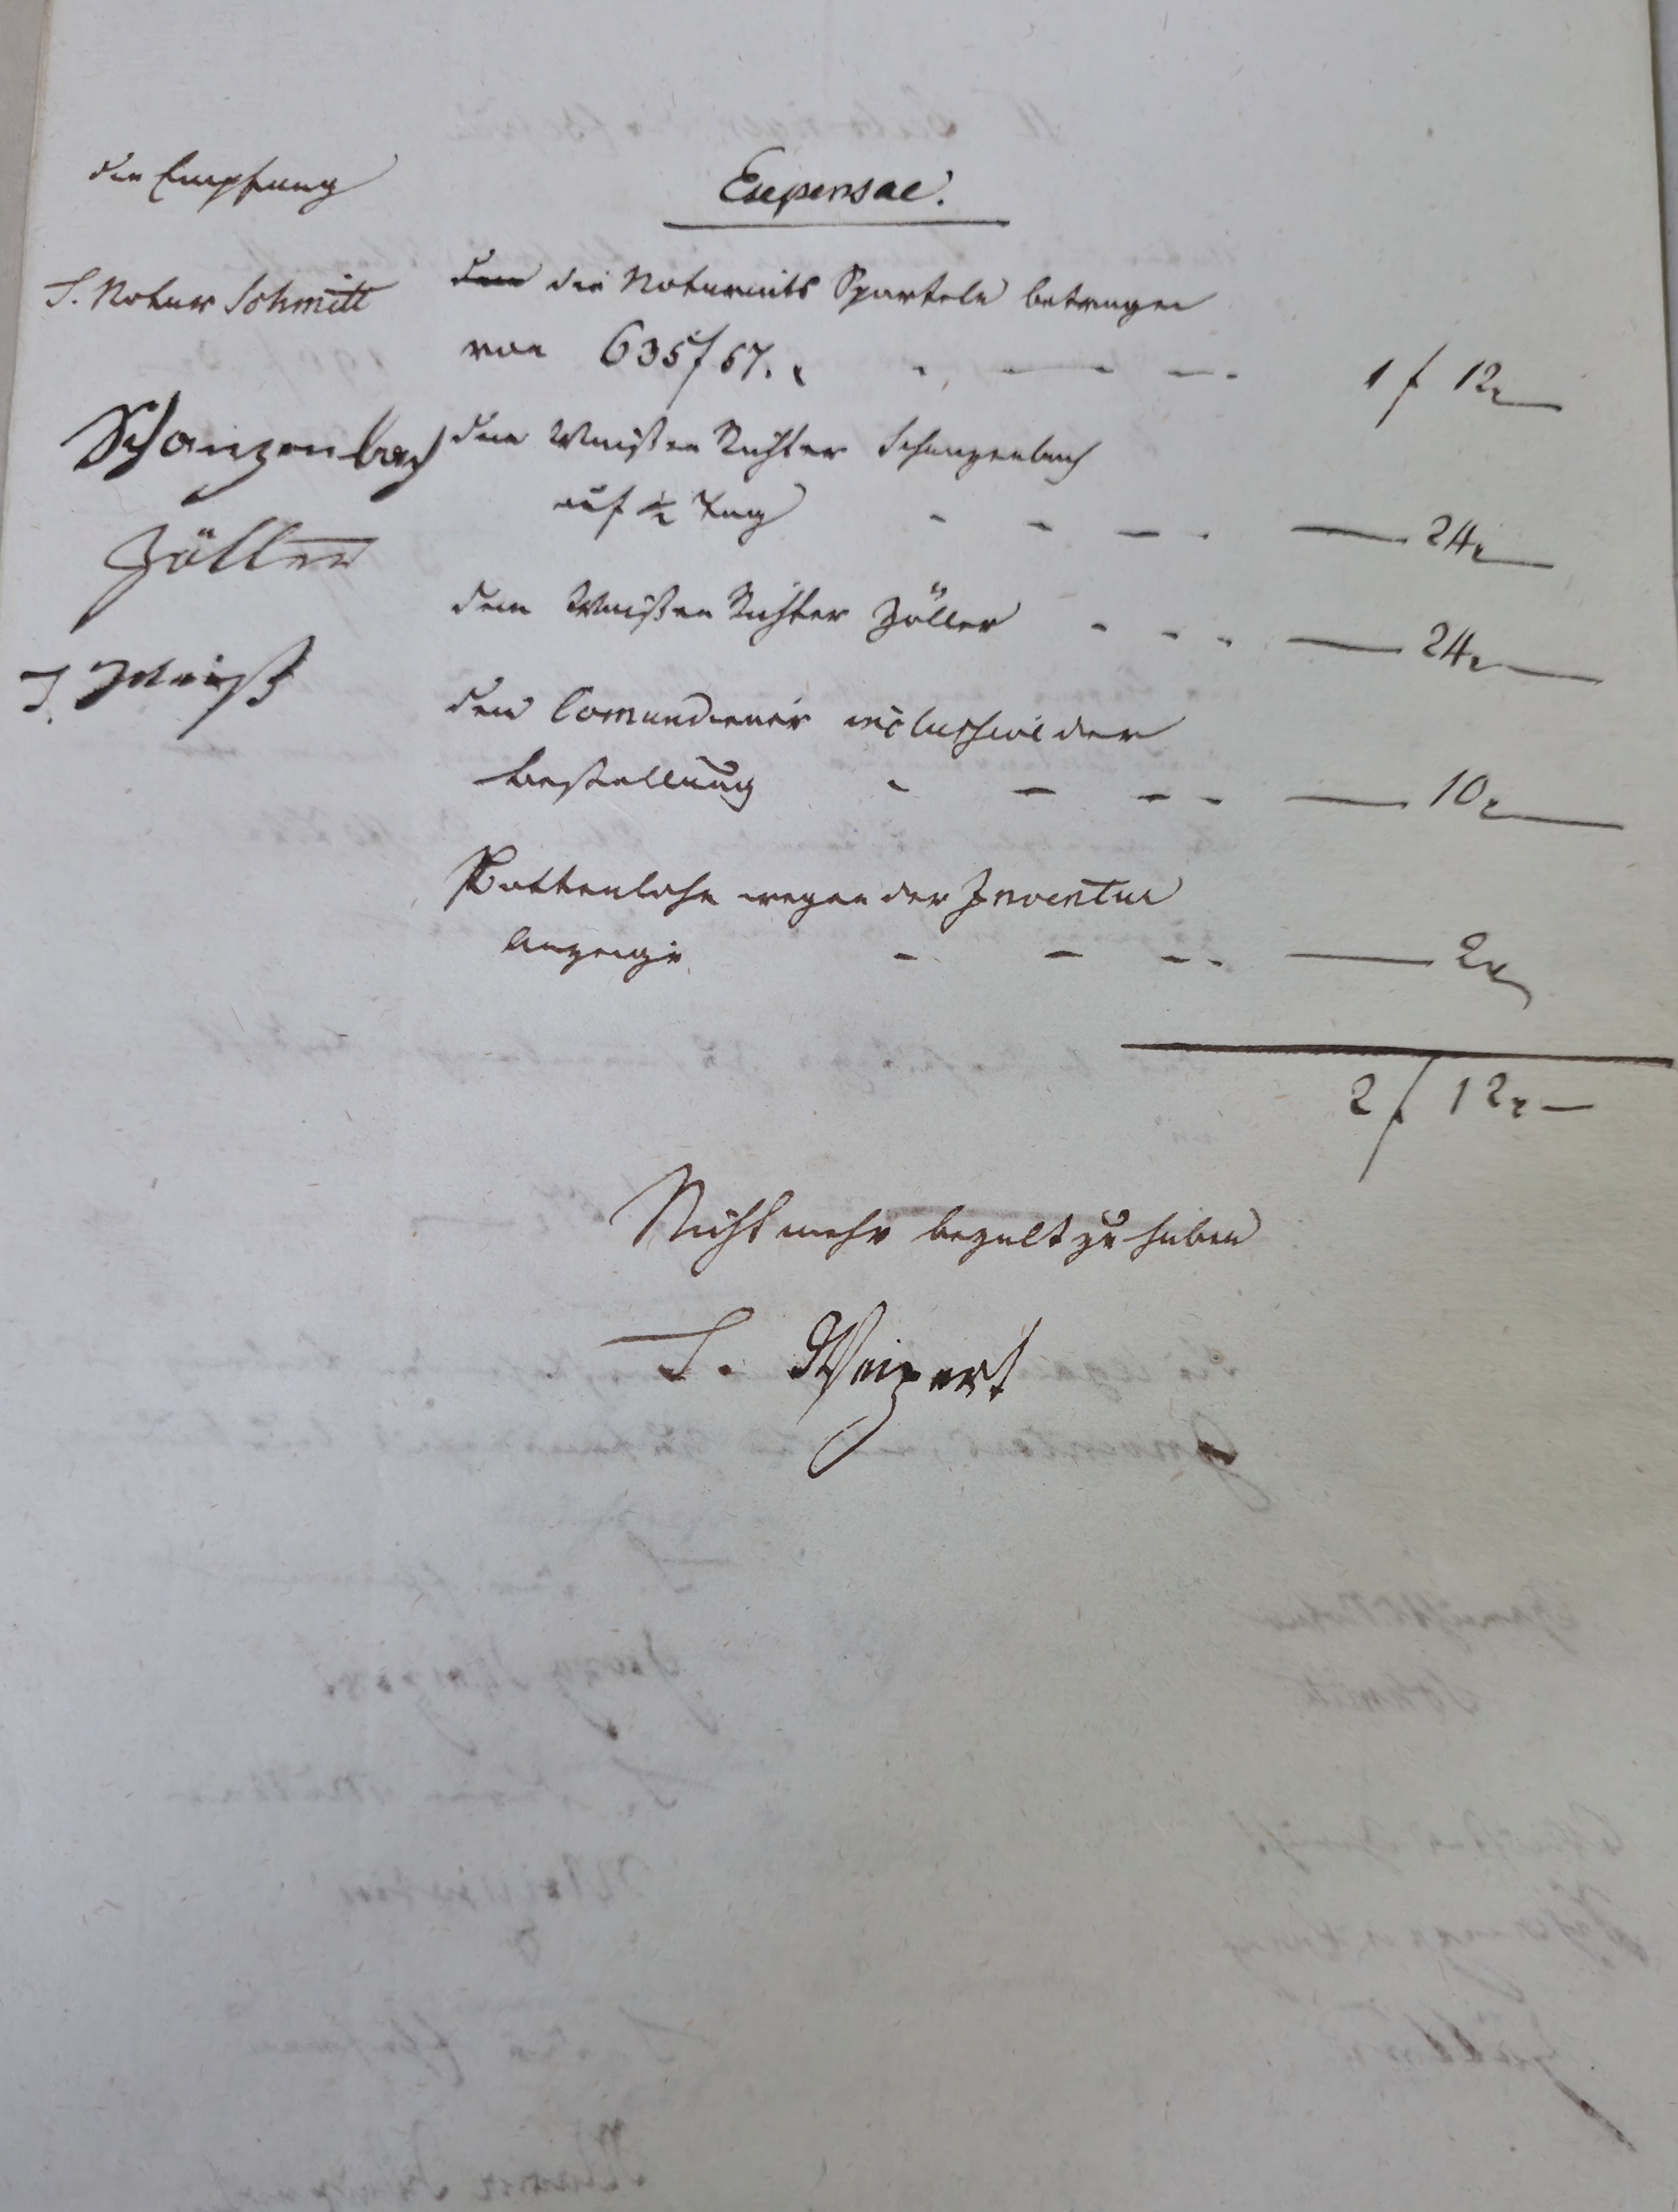 den Empfang
Expensae.
T. Notar Schmitt
dem die Notariats Sporteln betragen
von 635 f 57. x 1 f 12 x
Schanzenbach
dem Waißen Richter Schanzenbach
auf ½ Tag 24 x
Zöller
dem Waißen Richter Zöller 24 x
T. Weiß
dem Comundiener inclusive der
Bestellung 10 x
Bottenlohn wegen der Inventur
Anzeige 2 x
2 f 12 x
Nicht mehr bezalt zu haben
T. Weizert